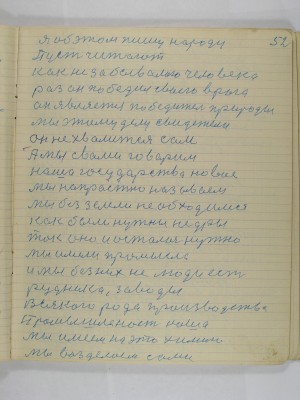 52
Я об этом пишу народу
Пуст читают
как не забываемо человека
раз он победил своего врага
он является победител природы
мы этому делу свидетели
он не хвалится сам
А мы с вами говарим
наша государства новые
мы напрастно называем
мы без земли не обходимся
как были нужны недры
так оно и осталос нужно
мы имели промысла
и мы без них не люди ест
рудника, заводы
Всякого рода производства
Громышленост наша
мы имеем на это химию
мы возделаем сами